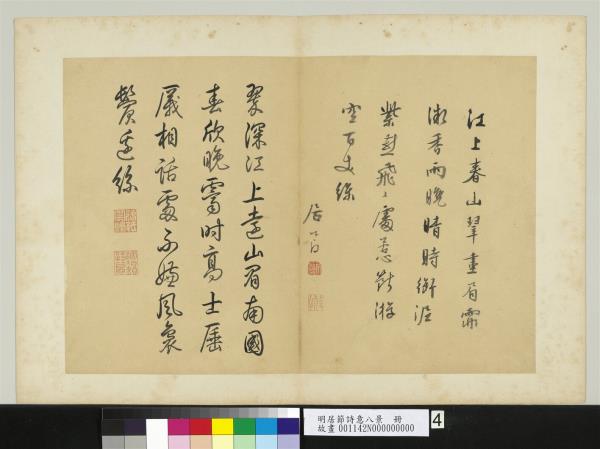 江上春山翠畫眉霏
微香雨晚晴時銜泥
紫燕飛〻處惹斷游
空百丈絲
居節
翠深江上遠山眉南國
春欣晚霽時高士
相話處不嫌風裊
鬢邊絲
明居節詩意八景 冊
故畫 001142N000000000
4